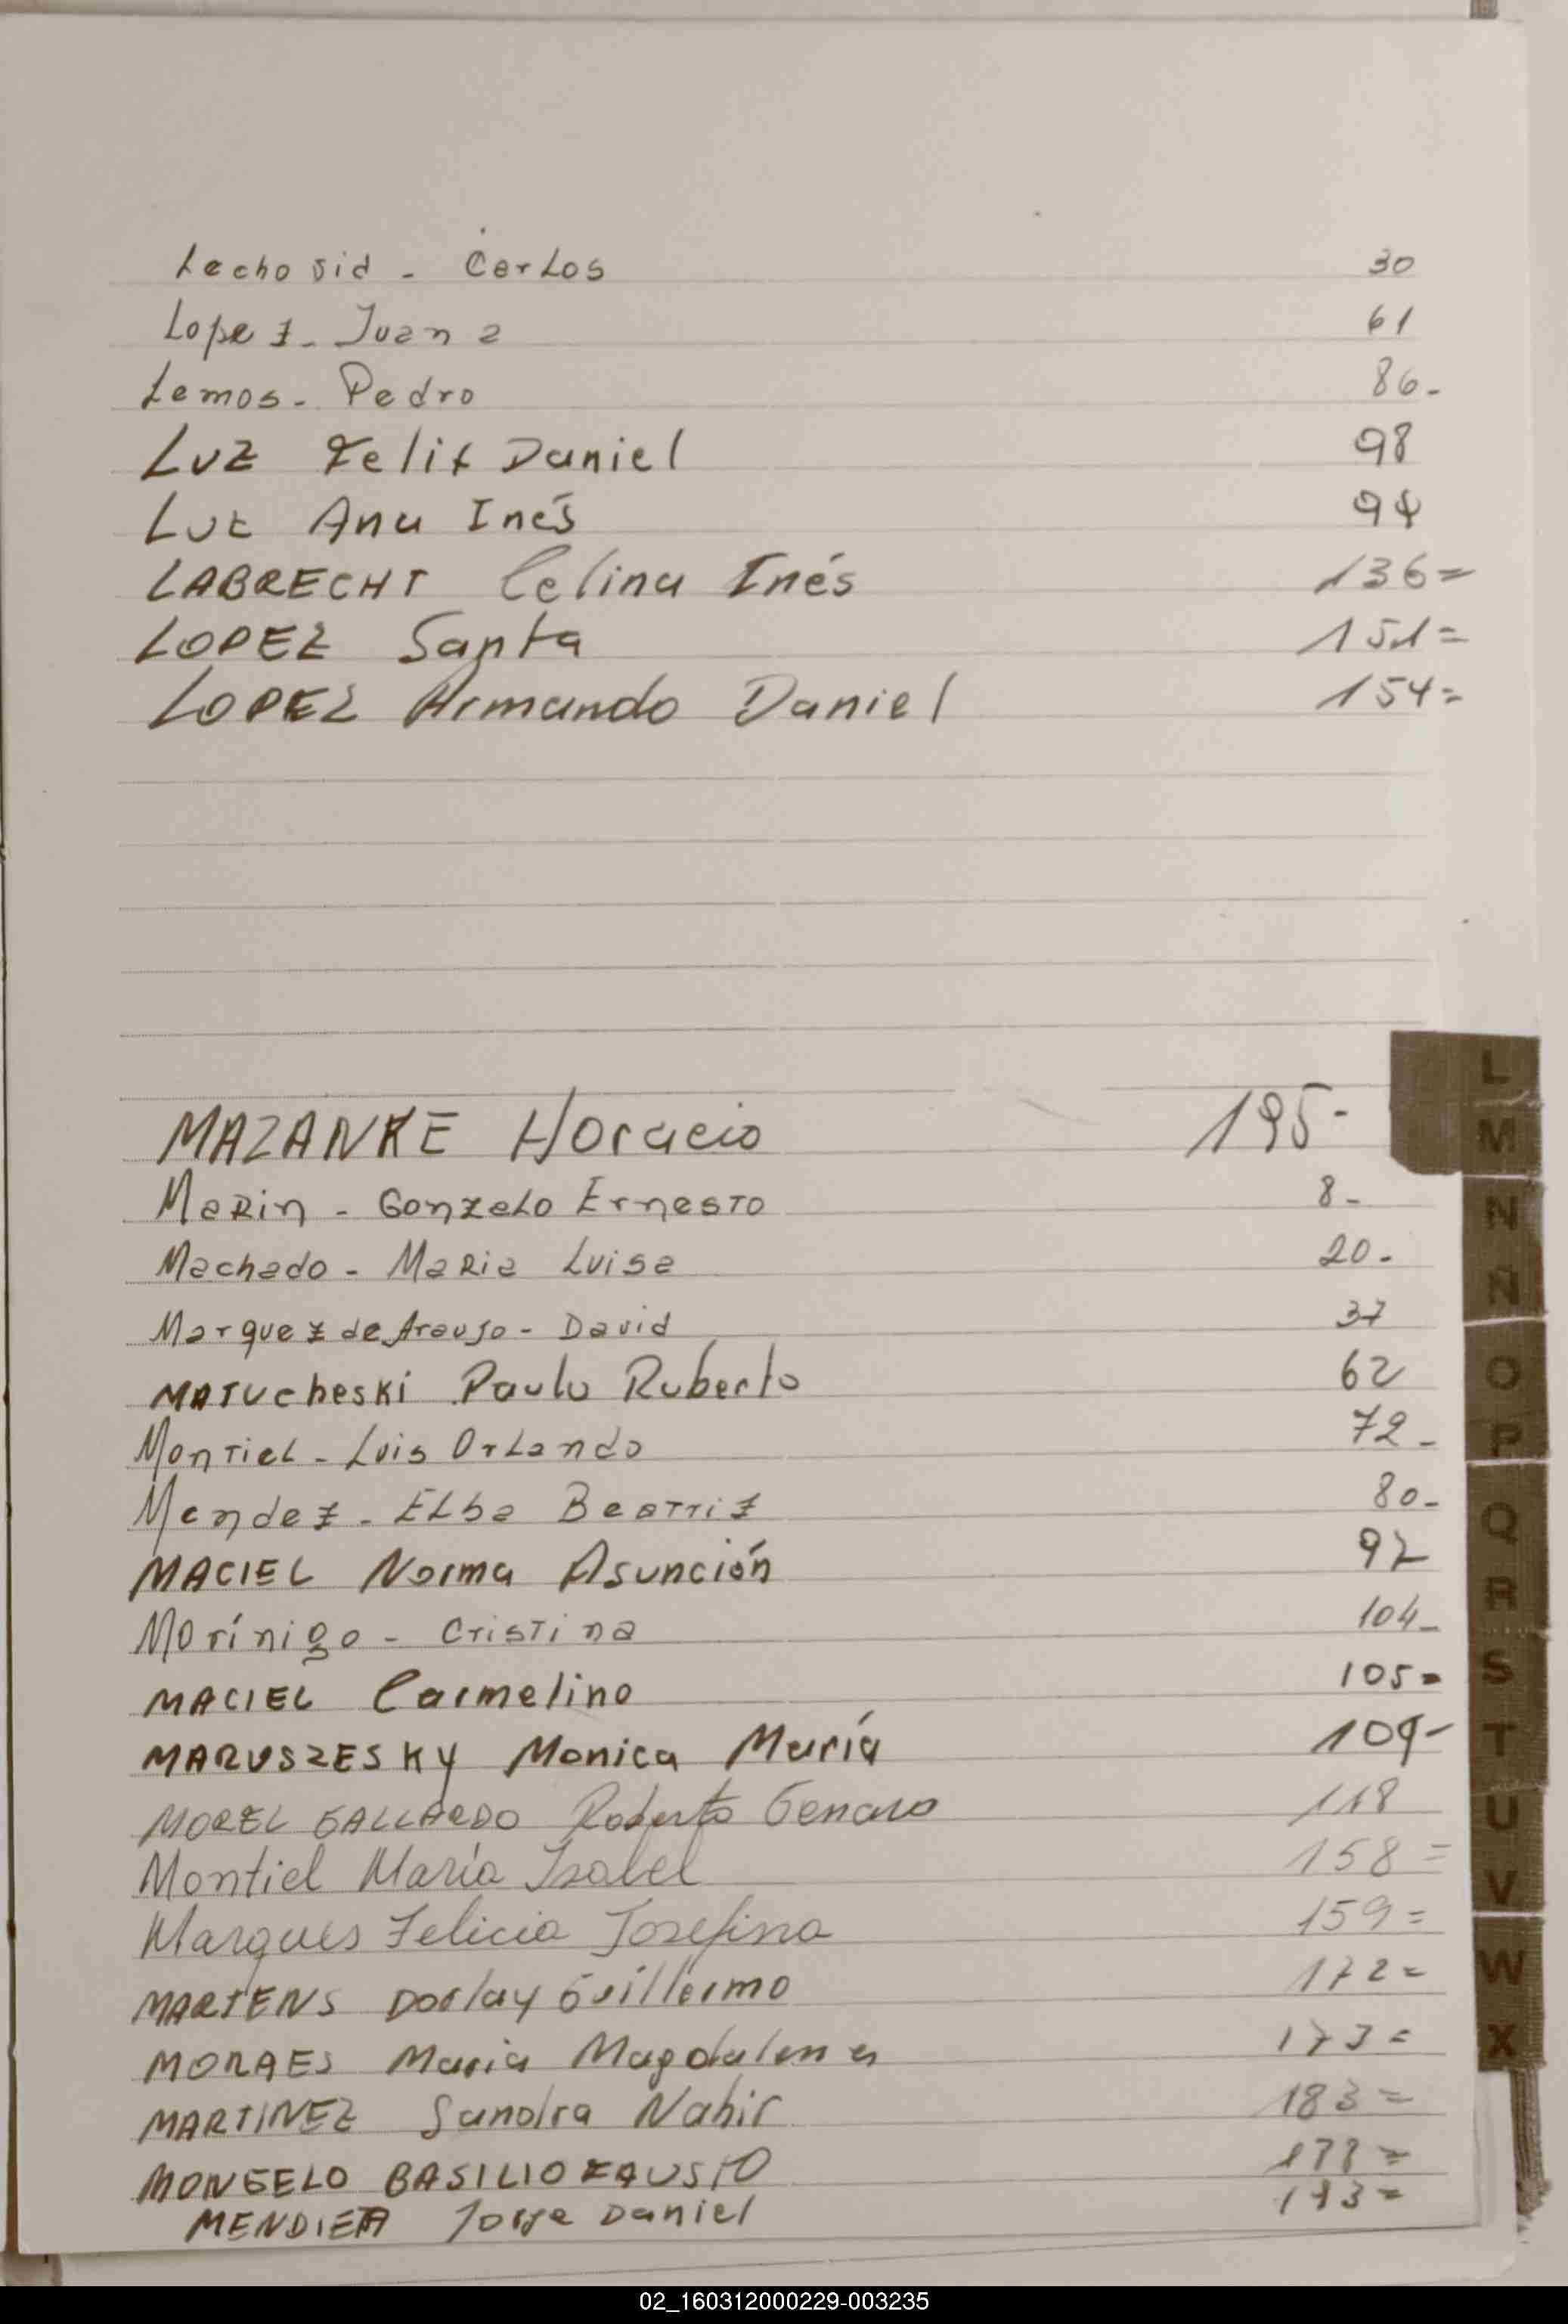 Lechosid - Carlos 30
Lopez - Juana 61
Lemos - Pedro 86-
LUZ Felix Daniel 98
LUZ Ana Inés 94
LABRECHT Celina Inés 136=
LOPEZ Santa 151=
LOPEZ Armando Daniel 154=
MAZANKE Horacio 195-
L
M
MaRin - Gonzalo Ernesto 8-
N
Machado - MaRia Luisa 20-
Ñ
Marquez de Araujo - David 37
MATUcheski Paulo Ruberto 62
O
Montiel - Luis Orlando 72-
P
Mendez - Elba Beatriz 80-
Q
MACIEL Norma Asunción 92
R
Morínigo - Cristina 104-
MACIEL Carmelino 105=
S
MARUSZESKY Monica María 109-
T
MOREL GALLARDO Roberto Genaro 118
U
Montiel María Isabel 158=
V
Marques Felicia Josefina 159=
MARTENS Dorlay Guillermo 172=
W
MORAES Maria Magdalena 173=
X
MARTINEZ Sandra Nahir 183=
MONGELO BASILIO FAUSTO
MENDIETA Jorge Daniel
02_160312000229-003235